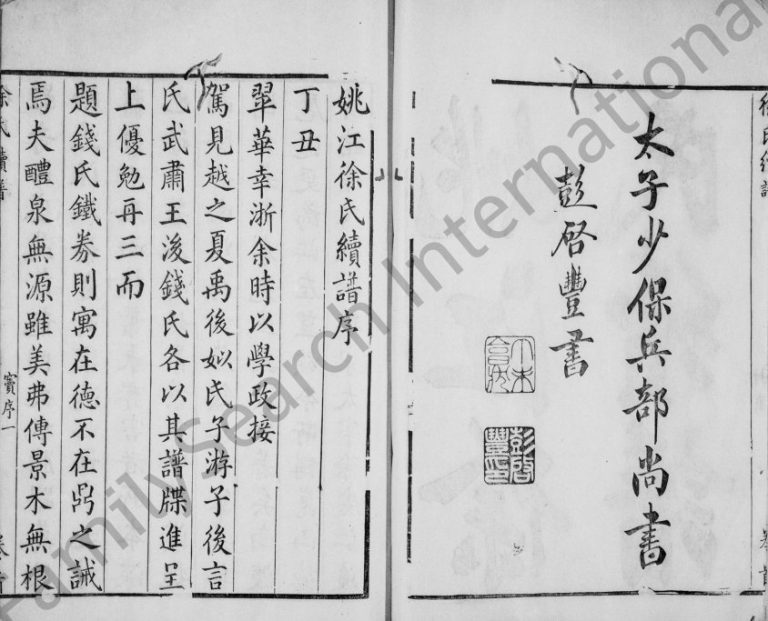 徐氏續譜
太子少保兵部尚書
彭啓豐書
彭啓豐印
卷首
姚江徐氏續譜序
丁丑
翠華幸浙余時以學政接
駕見越之夏禹後姒氏子游子後言
氏武肅王後錢氏各以其譜牒進呈
上優勉再三而
題錢氏鐵券則寓在德不在鼎之誡
焉夫醴泉無源雖美弗傳景木無根
徐氏續譜
竇序一
卷首
FamilySearch International